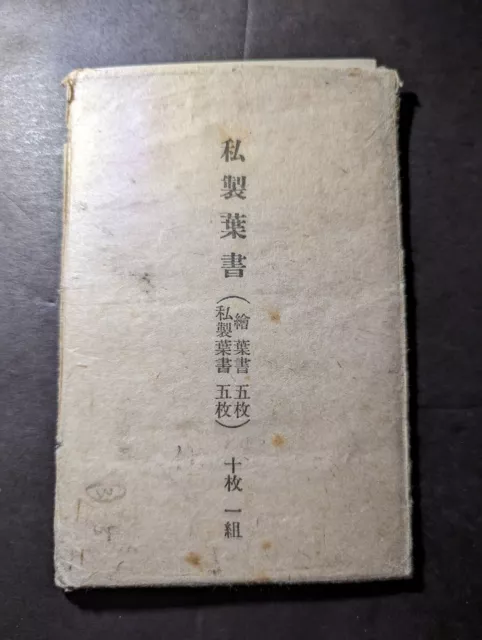 私製葉書
(繪葉書 五枚
私製葉書 五枚)
十枚一組